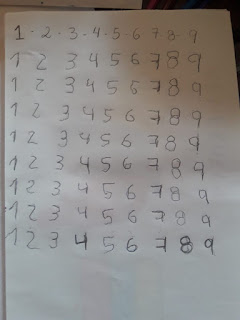 1 · 2 · 3 · 4 · 5 · 6 · 7 · 8 · 9
1 2 3 4 5 6 7 8 9
1 2 3 4 5 6 7 8 9
1 2 3 4 5 6 7 8 9
1 2 3 4 5 6 7 8 9
1 2 3 4 5 6 7 8 9
1 2 3 4 5 6 7 8 9
1 2 3 4 5 6 7 8 9
1 2 3 4 5 6 7 8 9